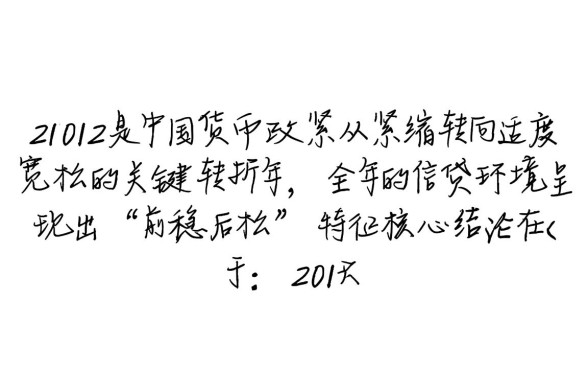 21012是中国货币政紧从紧缩转向适度
宽松的关键转折年，全年的信贷环境呈
现出“前稳后松”特征核心结论在<
于：201天